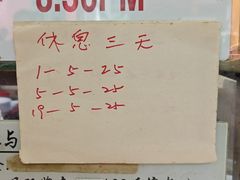 8:30PM
休息三天
1-5-25
5-5-25
19-5-25